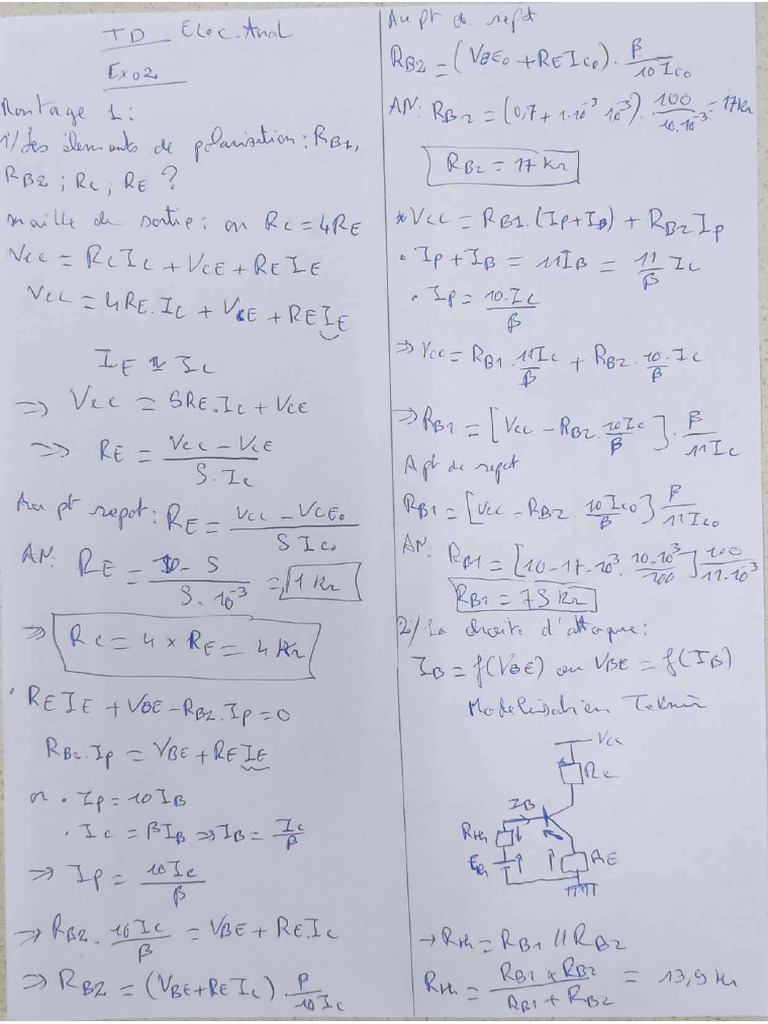 TD Elec.Anal
Exo2
Montage 1:
1/ Les élements de polarisation: RB1,
RB2; RC, RE ?
maille de sortie: on RC=4RE
VCC = RCIC + VCE + REIE
VCC = 4RE.IC + VCE + REIE
IE ≈ IC
=> VCC = 5RE.IC + VCE
=> RE = (VCC - VCE) / (5.IC)
Au pt repot: RE = (VCC - VCE0) / (5IC0)
AN: RE = (10 - 5) / (5.10^-3) = 1 KΩ
=> RC = 4 x RE = 4 KΩ
• REIE + VBE - RB2.Ip = 0
RB2.Ip = VBE + REIE
or • Ip = 10IB
• IC = βIB => IB = IC/β
=> Ip = 10IC/β
=> RB2. 10IC/β = VBE + REIC
=> RB2 = (VBE + REIC) β/10IC
Au pt de repot
RB2 = (VBE0 + REIC0). β/10IC0
AN: RB2 = (0,7 + 1.10^-3 10^3). 100/10.10^-3 = 17KΩ
RB2 = 17 KΩ
* VCC = RB1.(Ip+IB) + RB2Ip
• Ip + IB = 11IB = 11/β IC
• Ip = 10.IC/β
=> VCC = RB1. 11IC/β + RB2. 10.IC/β
=> RB1 = [VCC - RB2. 10IC/β]. β/11IC
A pt de repot
RB1 = [VCC - RB2. 10IC0/β] β/11IC0
AN: RB1 = [10 - 17.10^3. 10.10^-3/100] 100/11.10^-3
RB1 = 75 KΩ
2/ La droite d'attaque:
IB = f(VBE) ou VBE = f(IB)
VCC
RC
IB
Rth
Eth
RE
→ Rth = RB1 // RB2
Rth = (RB1 x RB2) / (RB1 + RB2) = 13,9 KΩ